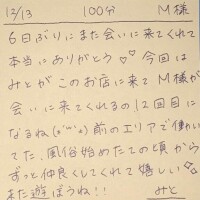 12/13 100分 M様
6日ぶりにまた会いに来てくれて
本当にありがとう♡♡ 今回は
みとがこのお店に来てM様が
会いに来てくれるの12回目に
なるね(o'ω'o) 前のエリアで働い
てた、風俗始めたての頃から
ずっと仲良くしてくれて嬉しい♡
また遊ぼうね!!
みと